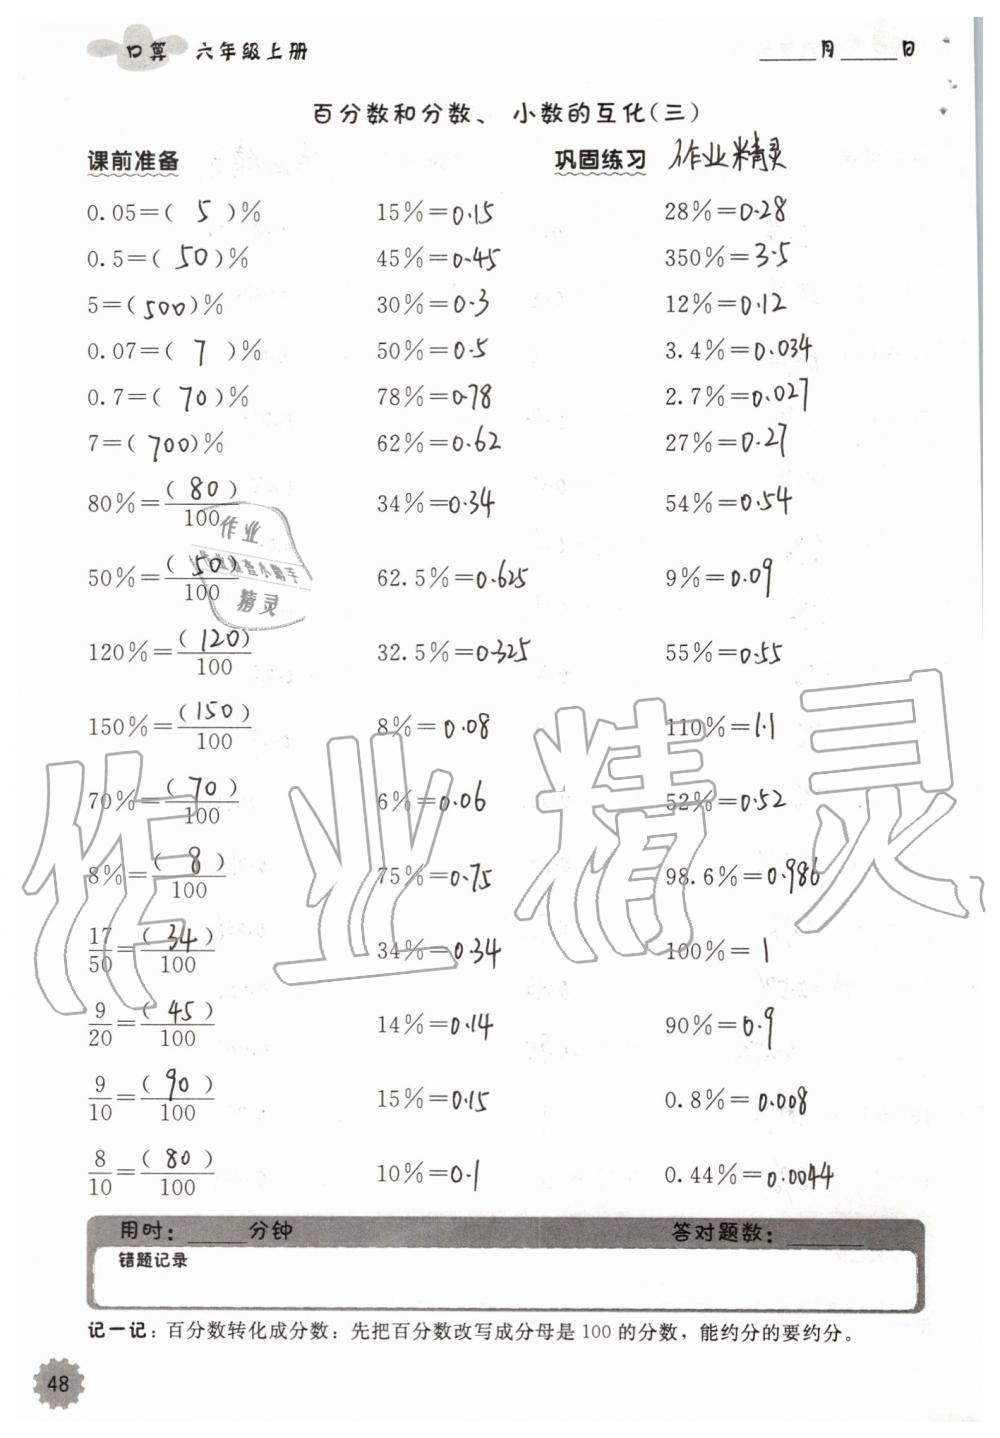 口算 六年级上册 ____月____日
百分数和分数、小数的互化(三)
课前准备 巩固练习 作业精灵
0.05=( 5 )% 15%=0.15 28%=0.28
0.5=( 50 )% 45%=0.45 350%=3.5
5=( 500 )% 30%=0.3 12%=0.12
0.07=( 7 )% 50%=0.5 3.4%=0.034
0.7=( 70 )% 78%=0.78 2.7%=0.027
7=( 700 )% 62%=0.62 27%=0.27
80%=( 80 )/100 34%=0.34 54%=0.54
作业
50%=( 50 )/100 62.5%=0.625 9%=0.09
精灵
120%=( 120 )/100 32.5%=0.325 55%=0.55
150%=( 150 )/100 8%=0.08 110%=1.1
70%=( 70 )/100 6%=0.06 52%=0.52
作业精灵
8%=( 8 )/100 75%=0.75 98.6%=0.986
17/50=( 34 )/100 34%=0.34 100%=1
9/20=( 45 )/100 14%=0.14 90%=0.9
9/10=( 90 )/100 15%=0.15 0.8%=0.008
8/10=( 80 )/100 10%=0.1 0.44%=0.0044
用时：____分钟 答对题数：____
错题记录
记一记：百分数转化成分数：先把百分数改写成分母是 100 的分数，能约分的要约分。
48